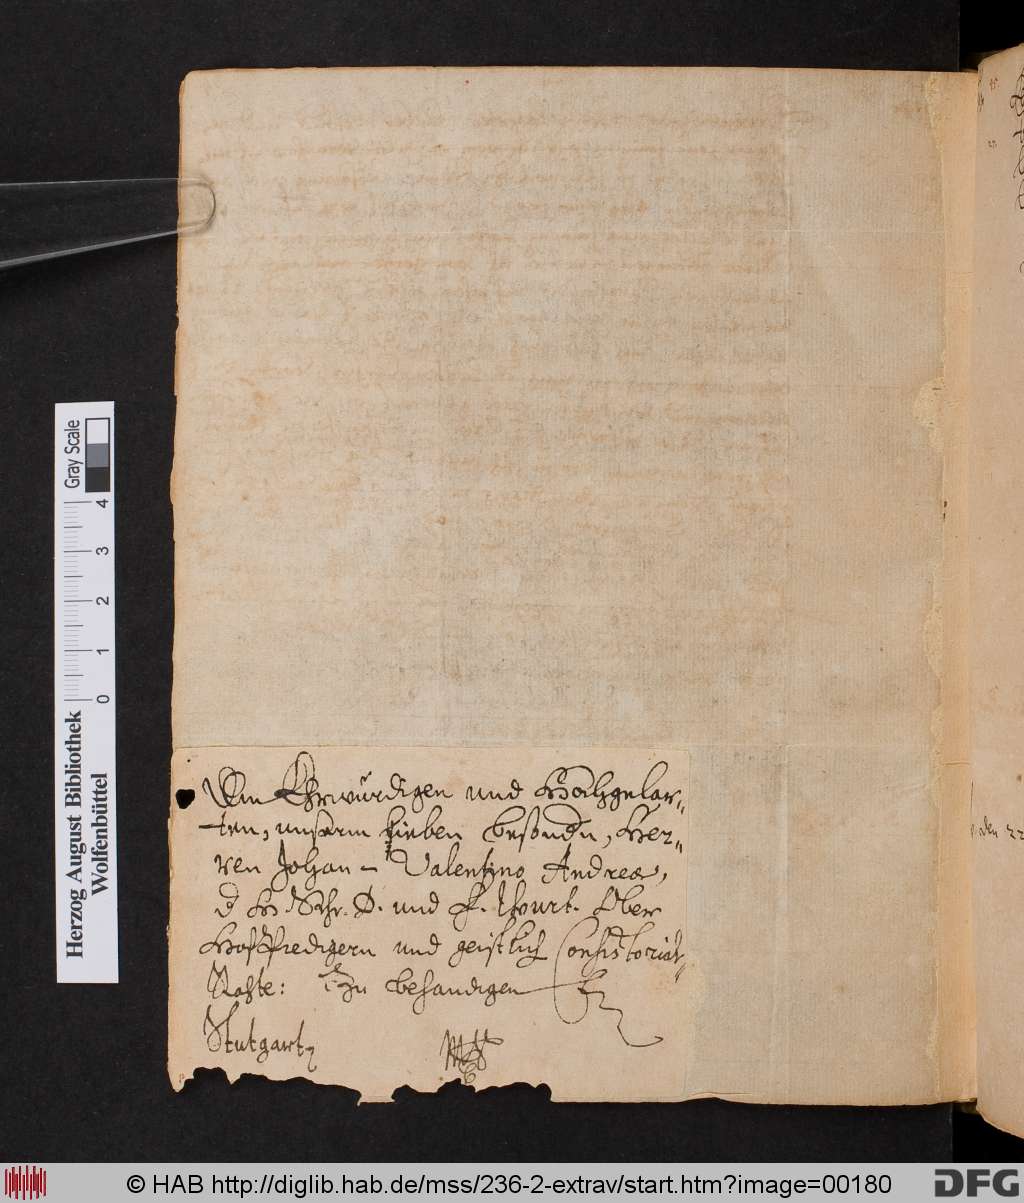 Dem Ehrwürdigen und Hochgelar-
ten, unserm lieben besondern, Her-
ren Johan- Valentino Andreæ,
d H. Schr. D. und F. Wurt. Ober
Hoffpredigern und geistlich Consistorial-
Rahte: Zu behandigen
Stutgart
den 22
Gray Scale
4
3
2
1
0
Herzog August Bibliothek
Wolfenbüttel
© HAB http://diglib.hab.de/mss/236-2-extrav/start.htm?image=00180
DFG